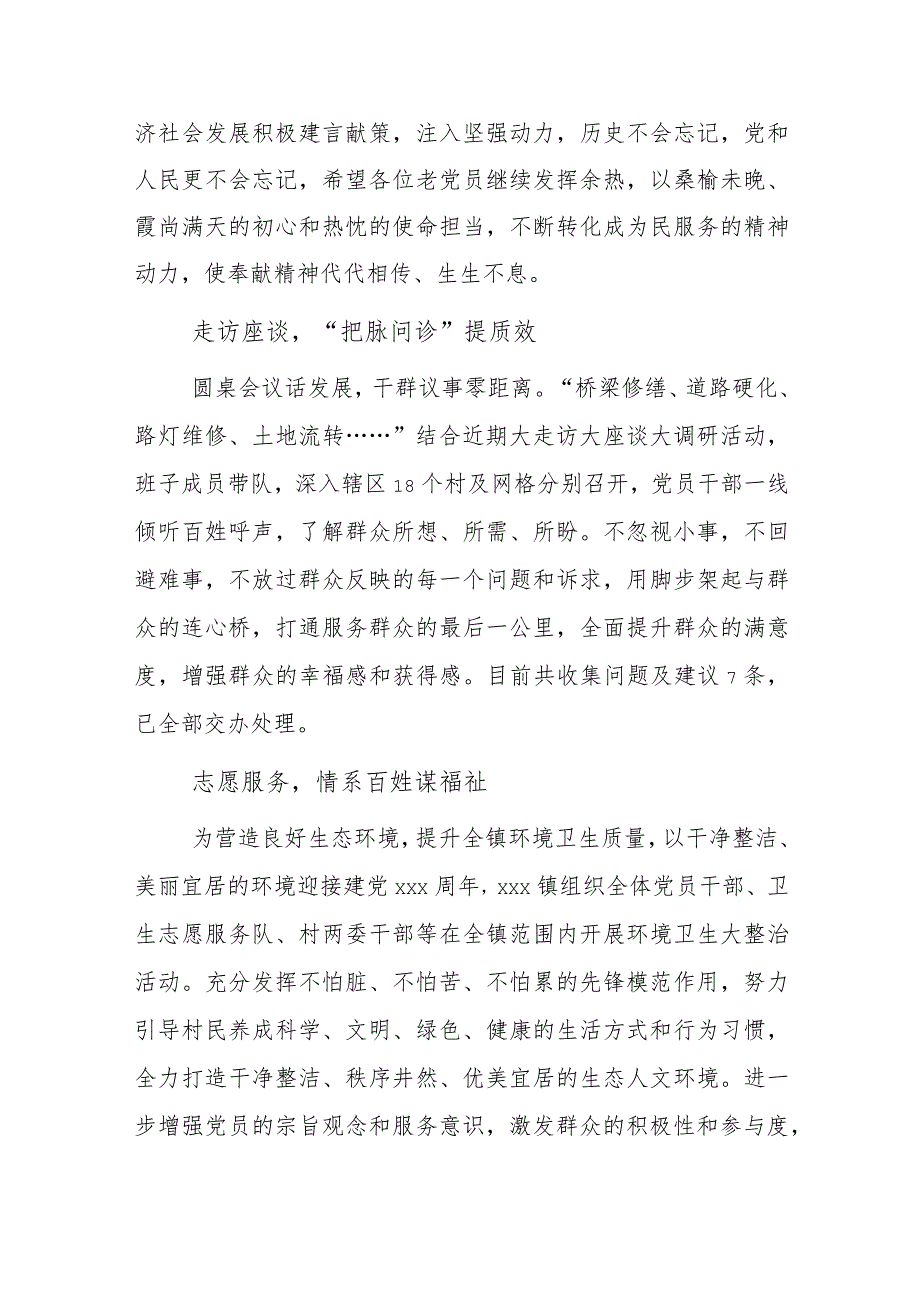 济社会发展积极建言献策，注入坚强动力，历史不会忘记，党和
人民更不会忘记，希望各位老党员继续发挥余热，以桑榆未晚、
霞尚满天的初心和热忱的使命担当，不断转化成为民服务的精神
动力，使奉献精神代代相传、生生不息。
走访座谈，“把脉问诊”提质效
圆桌会议话发展，干群议事零距离。“桥梁修缮、道路硬化、
路灯维修、土地流转……”结合近期大走访大座谈大调研活动，
班子成员带队，深入辖区 18 个村及网格分别召开，党员干部一线
倾听百姓呼声，了解群众所想、所需、所盼。不忽视小事，不回
避难事，不放过群众反映的每一个问题和诉求，用脚步架起与群
众的连心桥，打通服务群众的最后一公里，全面提升群众的满意
度，增强群众的幸福感和获得感。目前共收集问题及建议 7 条，
已全部交办处理。
志愿服务，情系百姓谋福祉
为营造良好生态环境，提升全镇环境卫生质量，以干净整洁、
美丽宜居的环境迎接建党 xxx 周年，xxx 镇组织全体党员干部、卫
生志愿服务队、村两委干部等在全镇范围内开展环境卫生大整治
活动。充分发挥不怕脏、不怕苦、不怕累的先锋模范作用，努力
引导村民养成科学、文明、绿色、健康的生活方式和行为习惯，
全力打造干净整洁、秩序井然、优美宜居的生态人文环境。进一
步增强党员的宗旨观念和服务意识，激发群众的积极性和参与度，